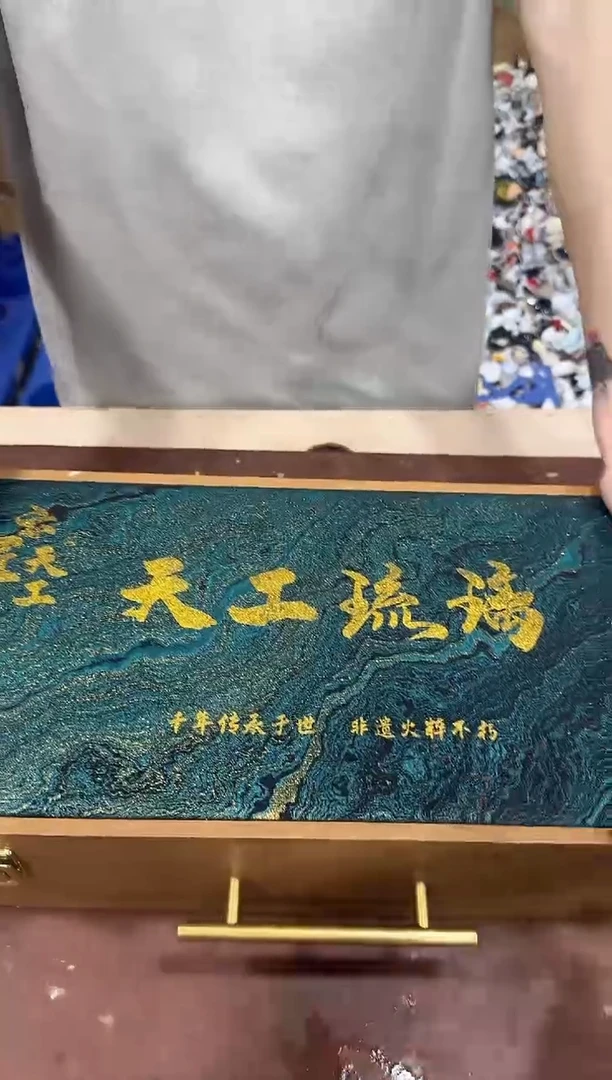 天工琉璃
千年传承于世 非遗火粹不朽
天工